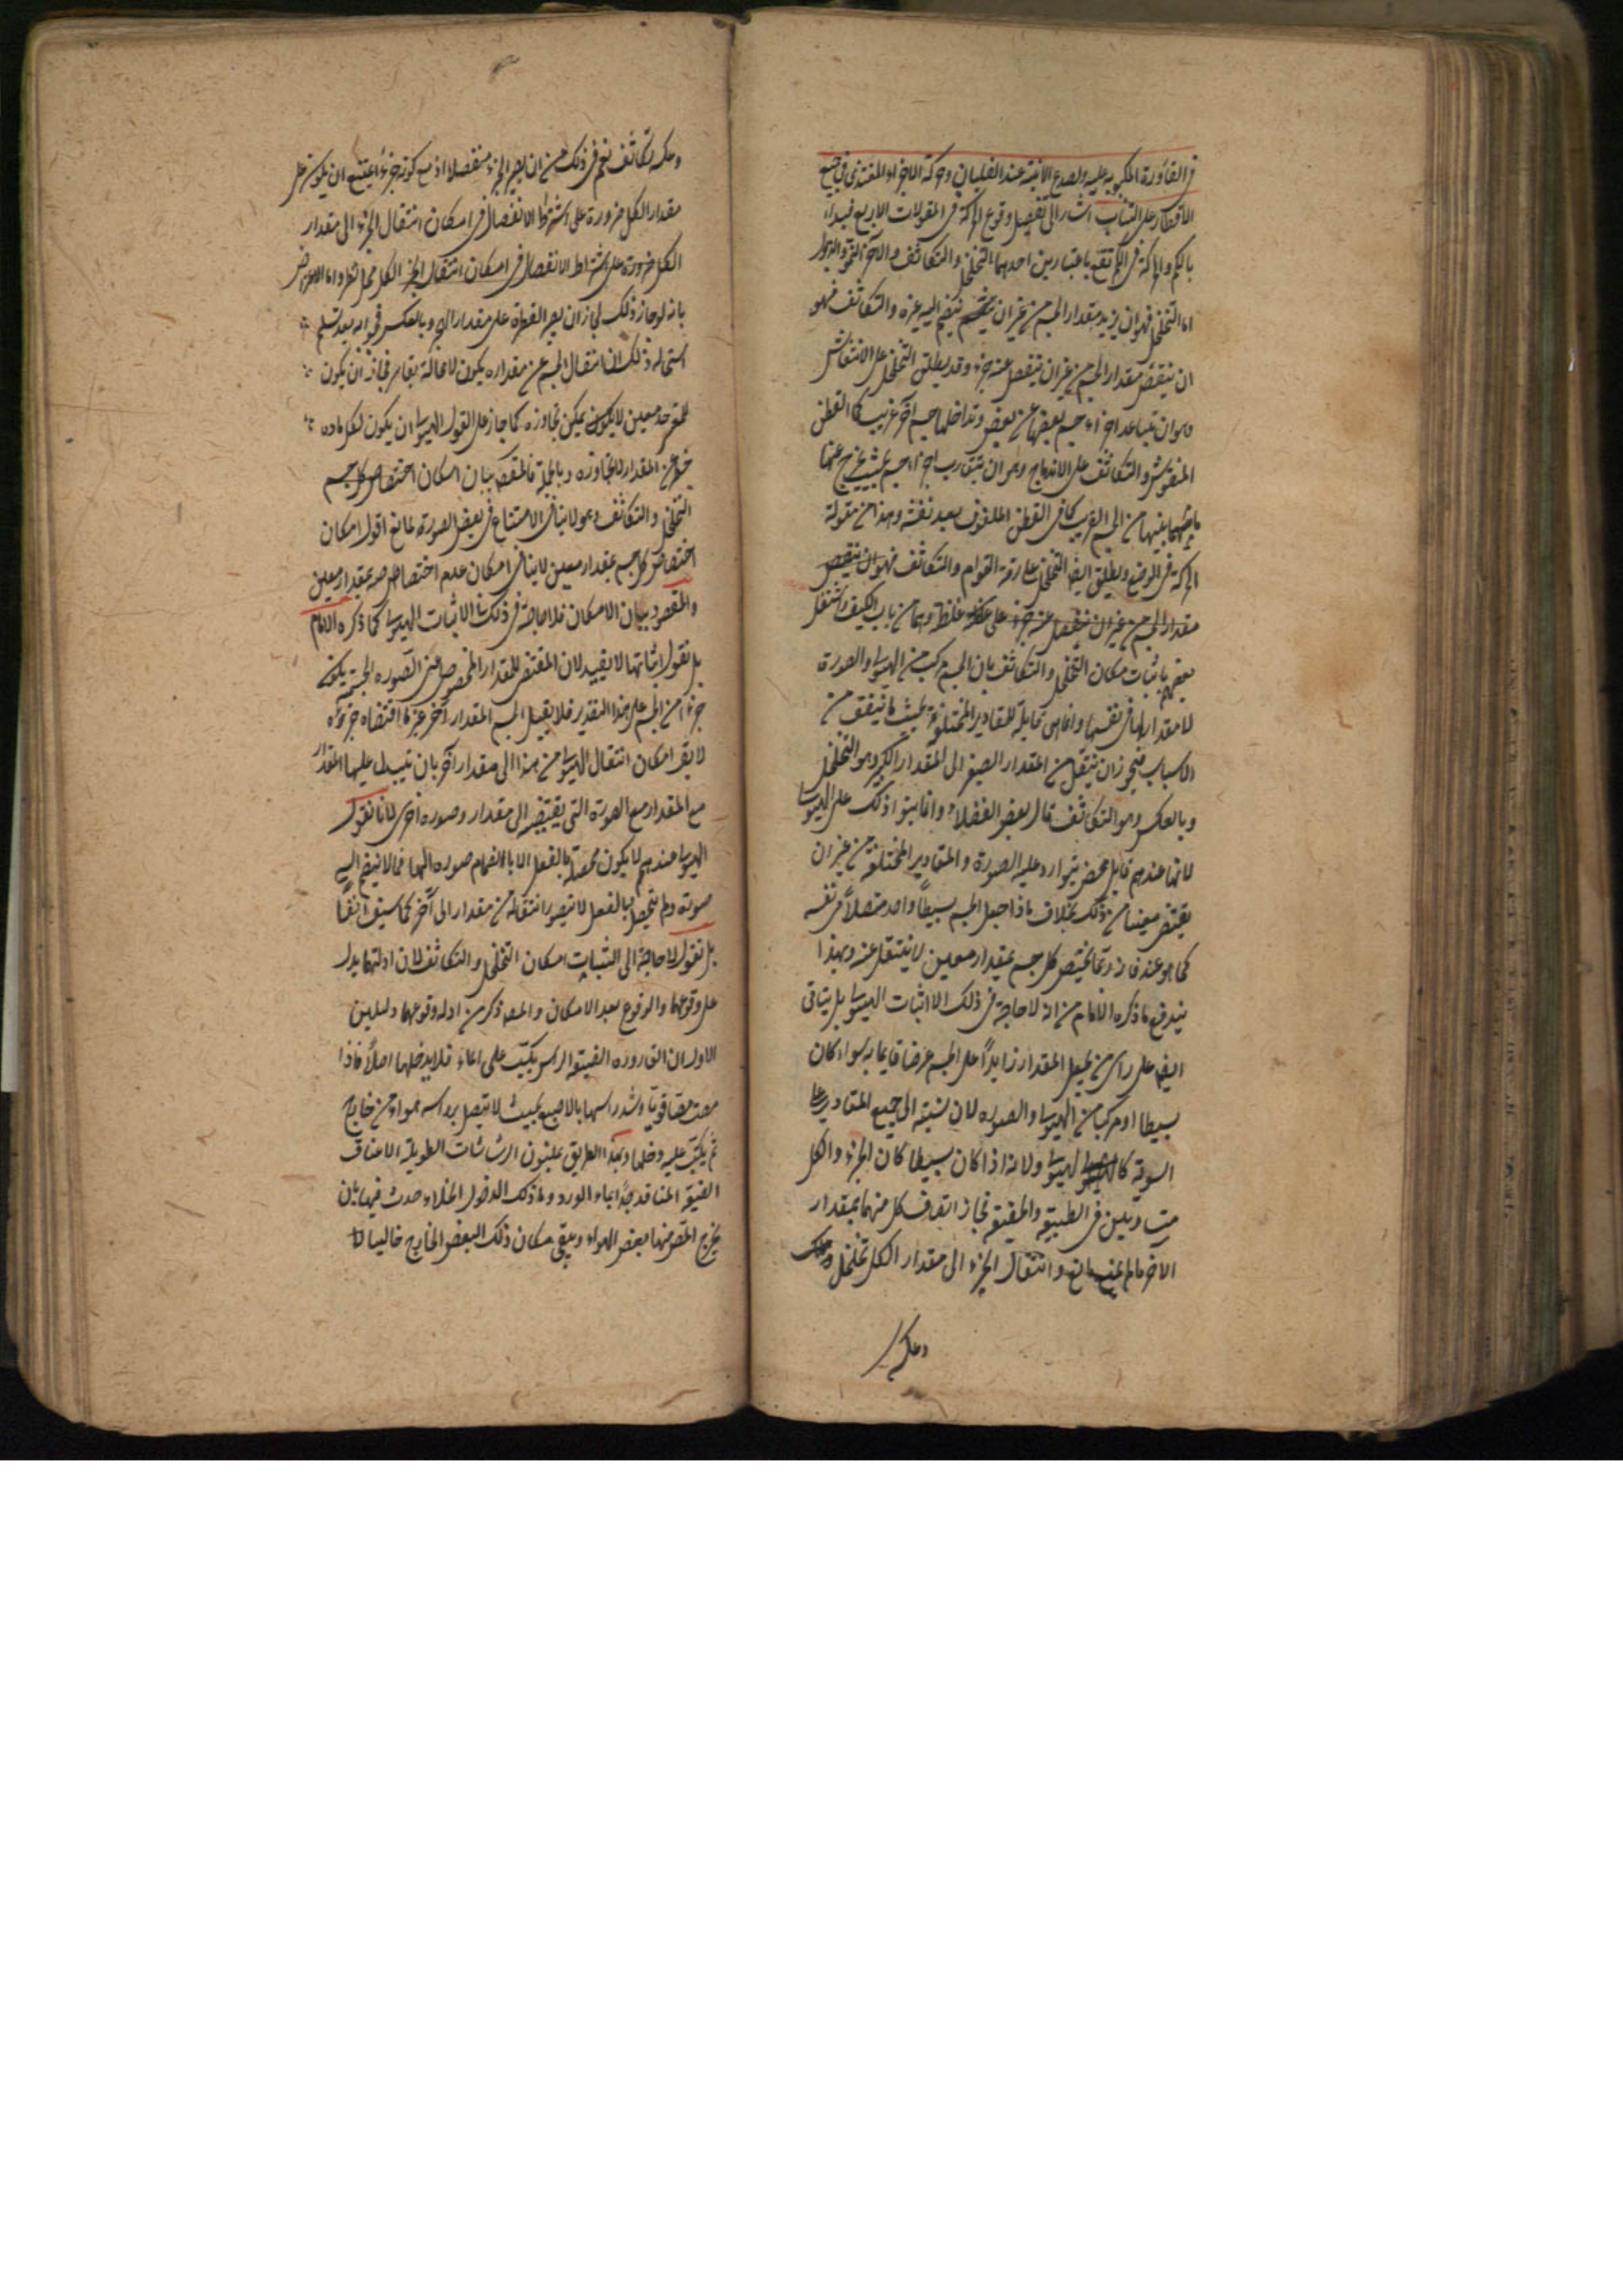 في القارورة المكبوبة عليه ولصدع الانية عند الغليان وحركة الاجزاء المغتذى في جميع
الاقطار على التناسب اشار الى تفصيل وقوع الحركة في المقولات الاربع فبداء
بالكم والحركة في الكم تقع باعتبارين احدهما التخلخل والتكاثف والآخر النمو والذبول
اما التخلخل فهو ان يزيد مقدار الجسم من غير ان ينضم اليه غيره والتكاثف فهو
ان ينتقص مقدار الجسم من غير ان ينفصل عنه جزء وقد يطلق التخلخل على الانتفاش
وهو ان يتباعد اجزاء جسم بعضها عن بعض وتداخلها جسم آخر غريب كالقطن
المنفوش والتكاثف على الاندماج وهو ان يتقارب اجزاء جسم بحيث يخرج عنها
ما بينها من الجسم الغريب كما في القطن الملفوف بعد نفشه وهذا من مقولة
الحركة في الوضع ويطلق ايضا التخلخل على رقة القوام والتكاثف فهو ان ينتقص
مقدار الجسم من غير ان ينفصل عنه جزء على غلظ وهما من باب الكيف واشتغل
بعضهم باثبات مكان التخلخل والتكاثف بان الجسم مركب من الهيولى والصورة
لا مقدار لها في نفسها وانما هى قابلة للمقادير المختلفة بحيث ما يتفق من
الاسباب فيجوز ان ينتقل من المقدار الصغير الى المقدار الكبير وهو التخلخل
وبالعكس وهو التكاثف قال بعض الفضلاء وانما بنوا ذلك على الهيولى
لانها عندهم قابل محض يتوارد عليه الصورة والمقادير المختلفة من غير ان
يقتضى معينا من ذلك بخلاف ما اذا جعل الجسم بسيطا واحد متصلا في نفسه
كما هو عند فانه ربما يختص كل جسم بمقدار معين لا ينتقل عنه وبهذا
يندفع ما ذكره الامام من انه لا حاجة في ذلك الا اثبات الهيولى بل يتاتى
ايضا على راى من يجعل المقدار زايدا على الجسم عرضا قايما به سواء كان
بسيطا او مركبا من الهيولى والصوره لان نسبته الى جميع المقادير على
السوية كالهيولى ولانه اذا كان بسيطا كان الجزء والكل
متساويين في الطبيعة والحقيقة فجاز اتصاف كل منهما بمقدار
الآخر ما لم يمنع مانع وانتقال الجزء الى مقدار الكل تخلخل وعكسه
وعكسه
وعكسه تكاثف نعم في ذلك من ان يصير الجزء منفصلا اذ مع كونه جزءا يمتنع ان يكون على
مقدار الكل ضرورة على اشتراط الانفصال في امكان انتقال الجزء الى مقدار
الكل ضرورة على اشتراط الانفصال في امكان انتقال الجزء الكل محل نظر واما الاعتراض
بانه لو جاز ذلك لجاز ان يصير القطرة على مقدار البحر وبالعكس فجوابه بعد تسليم
استحالة ذلك ان انتقال الجسم عن مقداره يكون لا محالة بقاسر فجاز ان يكون
للقسر حد معين لا يمكن تجاوزه كما جاز على القول الهيولى ان يكون لكل ماده
حظ من المقدار لا تجاوزه وبالجملة فالمقصود بيان امكان اختصاص كل جسم
التخلخل والتكاثف وهو لا ينافى الامتناع في بعض الصورة لمانع اقول امكان
اختصاص كل جسم بمقدار معين لا ينافى امكان عدم اختصاصه بمقدار معين
والمقصود بيان الامكان فلا حاجة في ذلك الا اثبات الهيولى كما ذكره الامام
بل نقول اثباتها لا يفيد لان المقتضى للمقدار المخصوص اعنى الصوره الجسمية يكون
جزءا من الجسم على هذا التقدير فلا يقبل الجسم المقدار آخر غير ما اقتضاه جزئه
لا يقر امكان انتقال الهيولى من هذا الى مقدار آخر بان يتبدل عليها المقدار
مع المقدار مع الصورة التى يقتضيه الى مقدار وصوره اخرى لانا نقول
الهيولى عندهم لا يكون محصلة بالفعل الا بانضمام صوره اليها فما لا ينضم اليه
صورة ولم يتحصل بالفعل لا يتصور انتقاله من مقدار الى آخر كما سبق آنفا
بل نقول لا حاجة الى اثبات امكان التخلخل والتكاثف لان ادلتها يدل
على وقوعها والوقوع بعد الامكان والمصنف ذكر من ادله وقوعهما دليلين
الاول ان القاروره الضيقة الراس يكب على الماء فلا يدخلها اصلا فاذا
مصت مصا قويا وشد راسها بالاصبع بحيث لا يتصل براسه هواء من خارج
ثم يكب عليه دخلها وبهذا الطريق يملئون الرشاشات الطويلة الاعناق
الضيقة المنافذ جدا بماء الورد وما ذلك الدخول الخلاء حدث فيها بان
يخرج المص منها بعض الهواء ويبقى مكان ذلك البعض الخارج خاليا لا